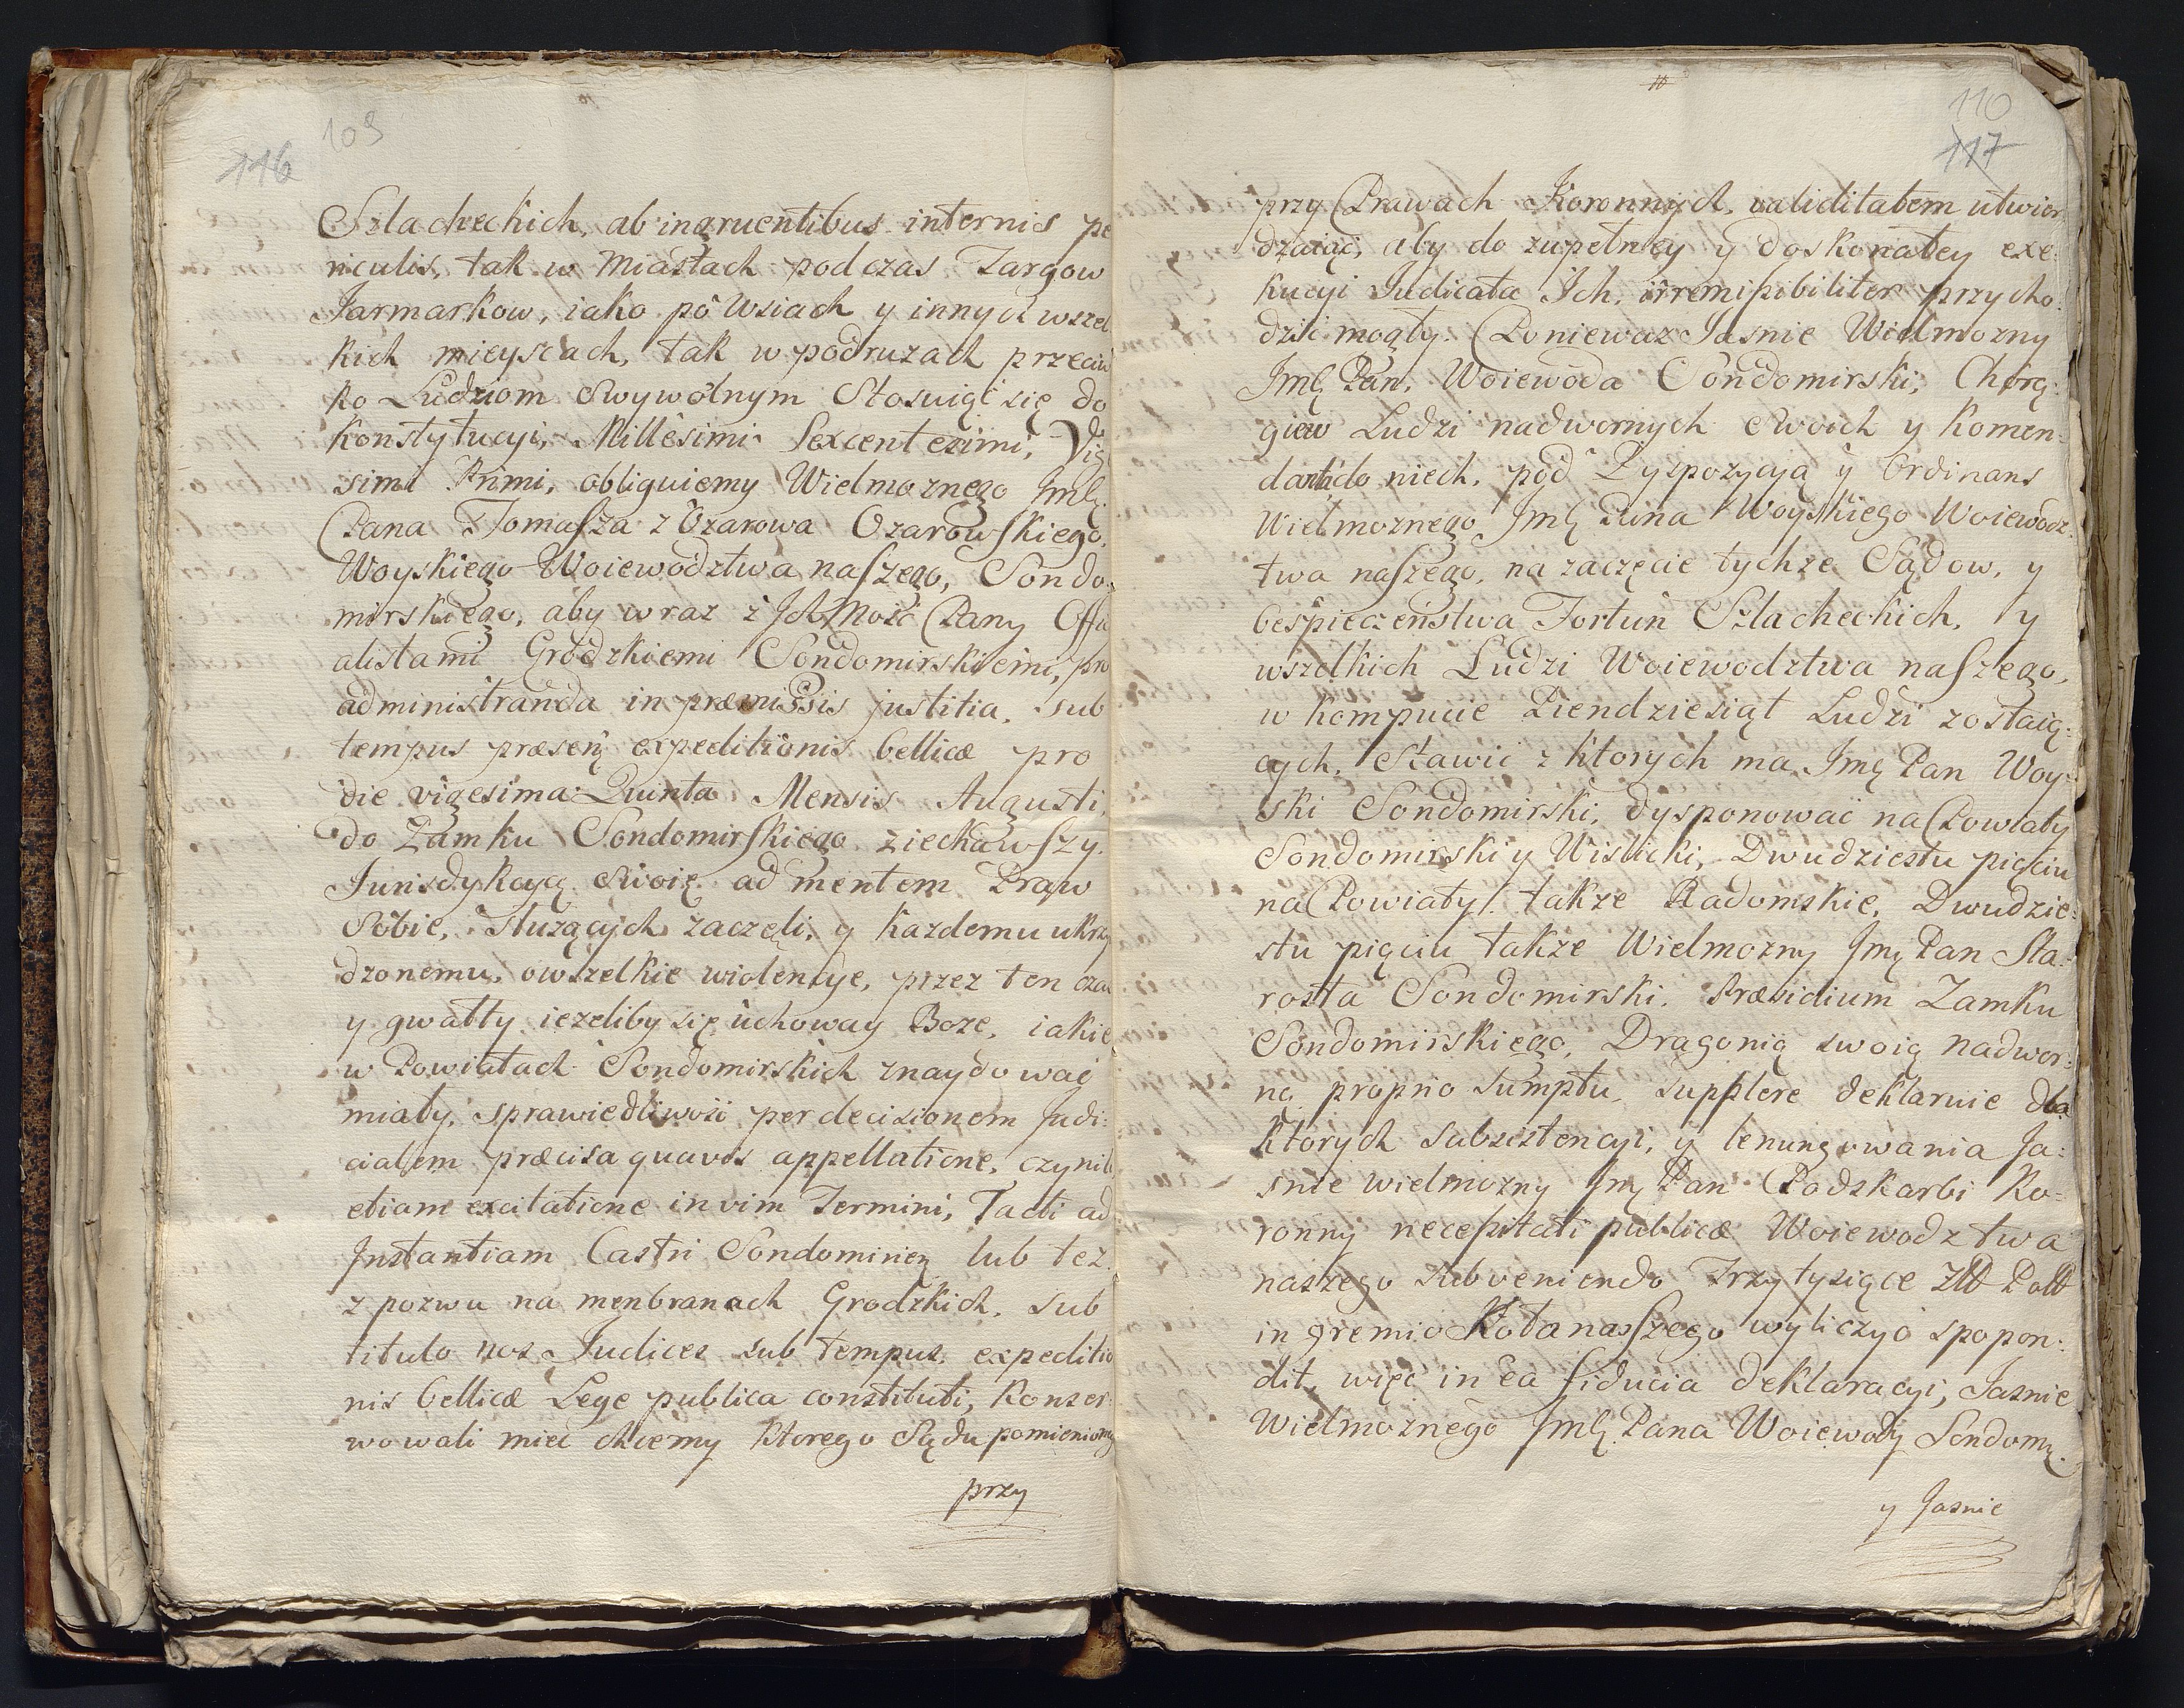 109
116
Szlacheckich, ab ingruentibus internis pe
riculis, tak w Miastach podczas Targow
Jarmarkow, iako po Wsiach y innych wszel
kich mieyscach, tak w podruzach przeciw
ko Ludziom Swywolnym Stosuiąc się do
Konstytucyi, Millesimi Sexcentesimi, Vig
simi Primi, obliguiemy Wielmoznego Jmłę
Pana Tomasza z Ozarowa Ozarowskiego,
Woyskiego Woiewodztwa naszego, Sondo
mirskiego, aby wraz z Jch Mość Pany Offici
alistami Grodzkiemi Sondomirskiemi, pro
administranda in præmissis justitia, sub
tempus præsenӡ expeditionis bellicæ pro
die vigesima Quinta Mensis Augusti,
do Zamku Sondomirskiego ziechawszy.
Jurisdykcyę swoię ad mentem Praw
Sobie, sluzących zaczęli, y kazdemu ukrzy
dzonemu, o wszelkie wiolencye, przez ten czas
y gwałty iezeliby się uchoway Boze, iakie
w Powiatach Sondomirskich znaydować
miały, sprawiedliwość per decisionem Judi:
cialem præcisa quavis appellatione, czynili
etiam excitatione in vim Termini, Tacti ad
Instantiam Castri Sondomirienӡ lub tez
z pozwu na menbranach Grodzkich, sub
titulo nos Judices sub tempus expeditio
nis bellicæ Lege publica constituti, Konser
wowali mieć chcemy ktorego Sądu pomieniony
przy
110
117
przy Prawach Koronnych, validitatem utwier
dzaiąc, aby do zupełney y doskonałey exe:
kucyi Judicata Jch, irremissibiliter przycho:
dzili mogły. Poniewaz Jasnie Wielmozny
Jmłę Pan, Woiewoda Sondomirski, Chorą:
giew Ludzi nadwornych Swoich y Komen:
danta do niech, pod Dyspozycyą y Ordinans
Wielmoznego Jmłę Pana Woyskiego Woiewodz:
twa naszego, na zaczęcie tychze Sądow, y
bespieczenstwa Fortun Szlacheckich, y
wszelkich Ludzi Woiewodztwa naszego,
w kompucie Piendziesiąt Ludzi zostaią:
cych, Stawić z ktorych ma Jmę Pan Woy:
ski Sondomirski, dysponować na Powiaty
Sondomirski y Wislicki, Dwudziestu pięciu
na Powiaty/. także Radomskie, Dwudzie:
stu pięciu takze Wielmozny Jmę Pan Sta:
rosta Sondomirski. Præsidium Zamku
Sondomirskiego, Dragonią swoią nadwor:
ną proprio sumptu, supplere deklaruie dla
ktorych subsistencyi, y lenungowania Ja:
snie wielmozny Jmę Pan Podskarbi Ko:
ronny necessitati publicæ Woiewodztwa
naszego subveniendo Trzy tysiące Złł Poll
in gremio Koła naszego wyliczyć spopon:
dit, więc in ea fiducia deklaracyi, Jasnie
Wielmoznego Jmłę Pana Woiewody Sondomӡ.
y Jasnie